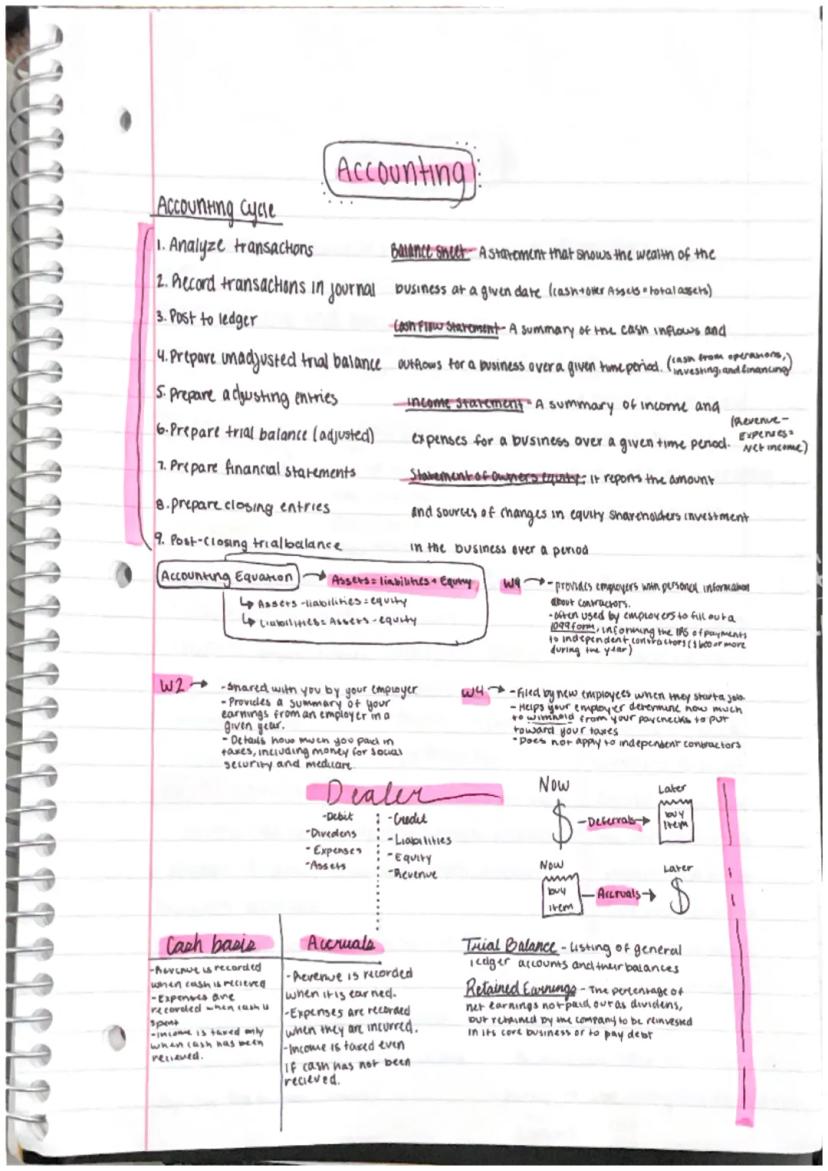 Accounting
Accounting Cycle
1. Analyze transactions
2. Record transactions in journal
3. Post to ledger
4. Prepare unadjusted trial balance
5. Prepare adjusting entries
6. Prepare trial balance (adjusted)
7. Prepare financial statements
8. Prepare closing entries
9. Post-closing trial balance
Balance Sheet - A statement that shows the wealth of the
business at a given date (cash + other Assets = total assets)
Cash Flow Statement - A summary of the cash inflows and
outflows for a business over a given time period. (cash from operations,
investing, and financing)
Income Statement - A summary of income and
expenses for a business over a given time period. (Revenue -
Expenses =
Net income)
Statement of Owners Equity: it reports the amount
and sources of changes in equity shareholders investment
in the business over a period
Accounting Equation → Assets = liabilities + Equity
↳ Assets - liabilities = equity
↳ Liabilities = Assets - equity
W9 → - provides employers with personal information
about contractors.
- often used by employers to fill out a
1099 form, informing the IRS of payments
to independent contractors ($600 or more
during the year)
W2 → - Shared with you by your employer
- Provides a summary of your
earnings from an employer in a
given year.
- Details how much you paid in
taxes, including money for social
security and medicare.
W4 → - Filed by new employees when they start a job.
- Helps your employer determine how much
to withhold from your paychecks to put
toward your taxes
- Does not apply to independent contractors
Dealer
- Debit
- Dividens
- Expenses
- Assets
- Credit
- Liabilities
- Equity
- Revenue
Now
Later
$ - Deferrals → buy
item
Now
Later
buy
item
Accruals → $
Cash basis
- Revenue is recorded
when cash is recieved
- Expenses are
recorded when cash is
spent
- Income is taxed only
when cash has been
recieved.
Accruals
- Revenue is recorded
when it is earned.
- Expenses are recorded
when they are incurred.
- Income is taxed even
if cash has not been
recieved.
Trial Balance - Listing of general
ledger accounts and their balances
Retained Earnings - The percentage of
net earnings not paid out as dividens,
but retained by the company to be reinvested
in its core business or to pay debt